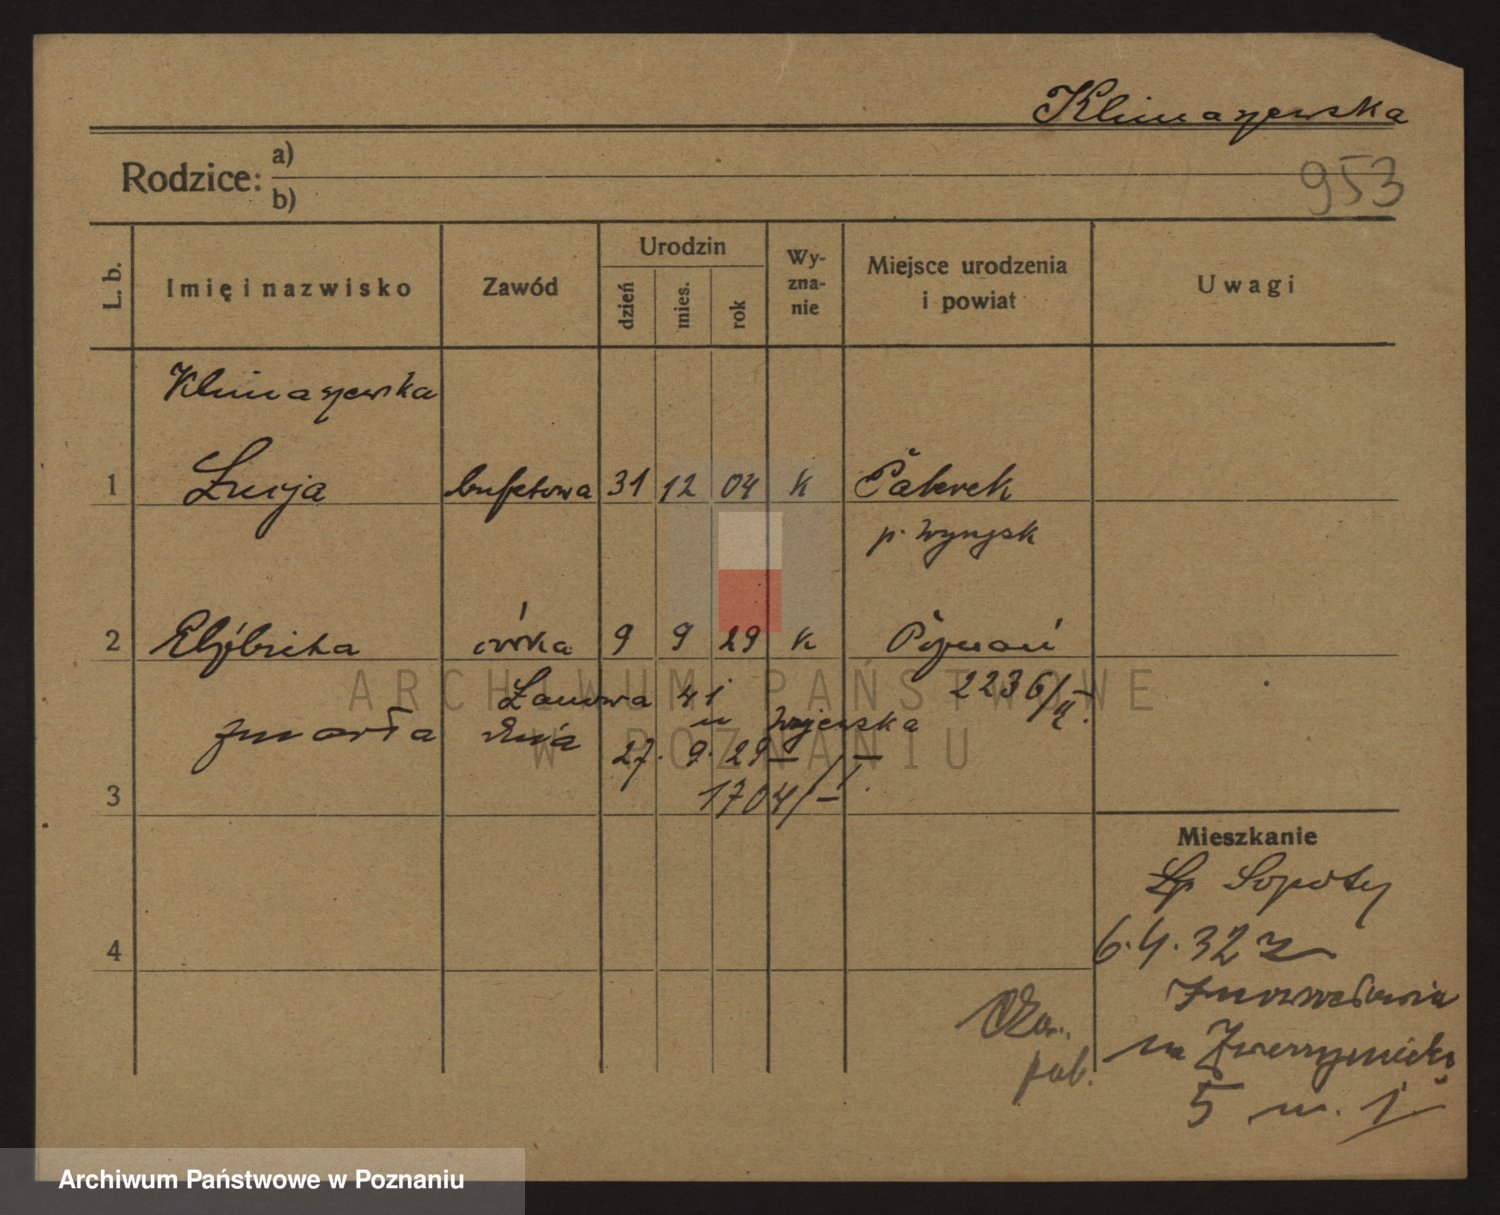 Klimaszewska
953
Rodzice: a)
b)
L. b.
Imię i nazwisko
Zawód
Urodzin
dzień
mies.
rok
Wy-
zna-
nie
Miejsce urodzenia
i powiat
Uwagi
Klimaszewska
1 Łucja bufetowa 31 12 04 k
p. Wyrzysk
2 Elżbieta córka 9 9 29 k Poznań
Łanowa 2236/II.
zmarła dnia 27. 9. 29
1704/I.
3
Mieszkanie
Sopoty
4
6.4.32 z
Inowrocławia
na Zwierzyniecką
5 m. 1
pob.
ARCHIWUM PAŃSTWOWE
W POZNANIU
Archiwum Państwowe w Poznaniu